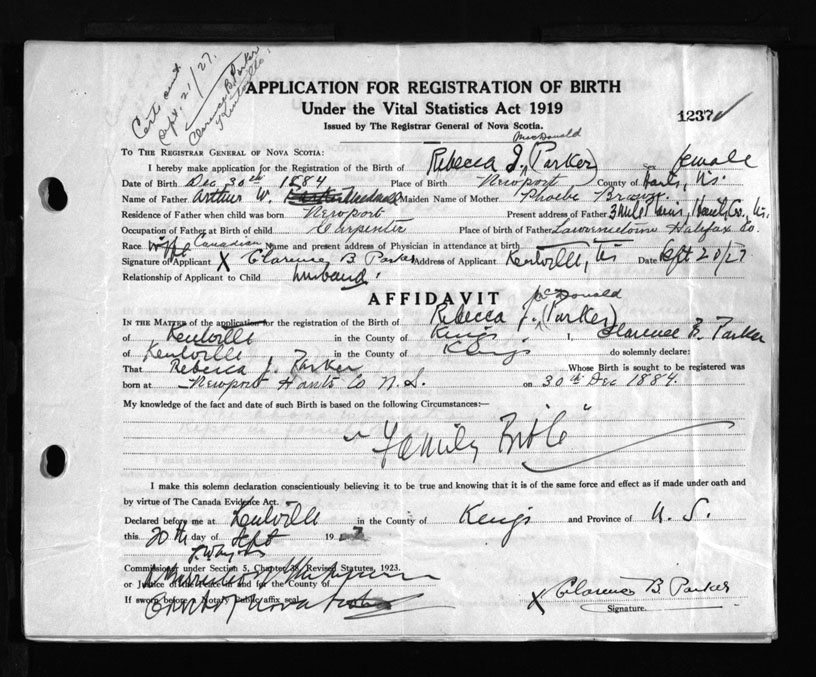 Cert. out.
Sept. 21/27.
Clarence B. Parker
APPLICATION FOR REGISTRATION OF BIRTH
Under the Vital Statistics Act 1919
1237
Issued by The Registrar General of Nova Scotia.
McDonald
TO THE REGISTRAR GENERAL OF NOVA SCOTIA:
I hereby make application for the Registration of the Birth of Rebecca J. (Parker) Sex female
Date of Birth Dec 30th 1884 Place of Birth Newport County of Hants, N.S.
Name of Father Arthur W. Maiden Name of Mother Phoebe
Residence of Father when child was born Newport Present address of Father 3 Mile Plains, Hants Co., N.S.
Occupation of Father at Birth of child Carpenter Place of birth of Father Lawrencetown Halifax Co.
Race Canadian Name and present address of Physician in attendance at birth
Signature of Applicant X Clarence B Parker Address of Applicant Kentville, NS Date Sept 20/27
Relationship of Applicant to Child husband.
AFFIDAVIT
McDonald
IN THE MATTER of the application for the registration of the Birth of Rebecca J. (Parker)
of Kentville in the County of Kings I, Clarence B. Parker
of Kentville in the County of Kings do solemnly declare:
That Rebecca J. Parker Whose Birth is sought to be registered was
born at Newport Hants Co N.S. on 30th Dec 1884.
My knowledge of the fact and date of such Birth is based on the following Circumstances:—
"Family Bible"
I make this solemn declaration conscientiously believing it to be true and knowing that it is of the same force and effect as if made under oath and
by virtue of The Canada Evidence Act.
Declared before me at Kentville in the County of Kings and Province of N. S.
this 20th day of Sept 1927
Commissioner under Section 5, Chapter 38, Revised Statutes, 1923.
or Justice of the Peace in and for the County of
If sworn before a Notary Public affix seal
X Clarence B Parker
Signature.